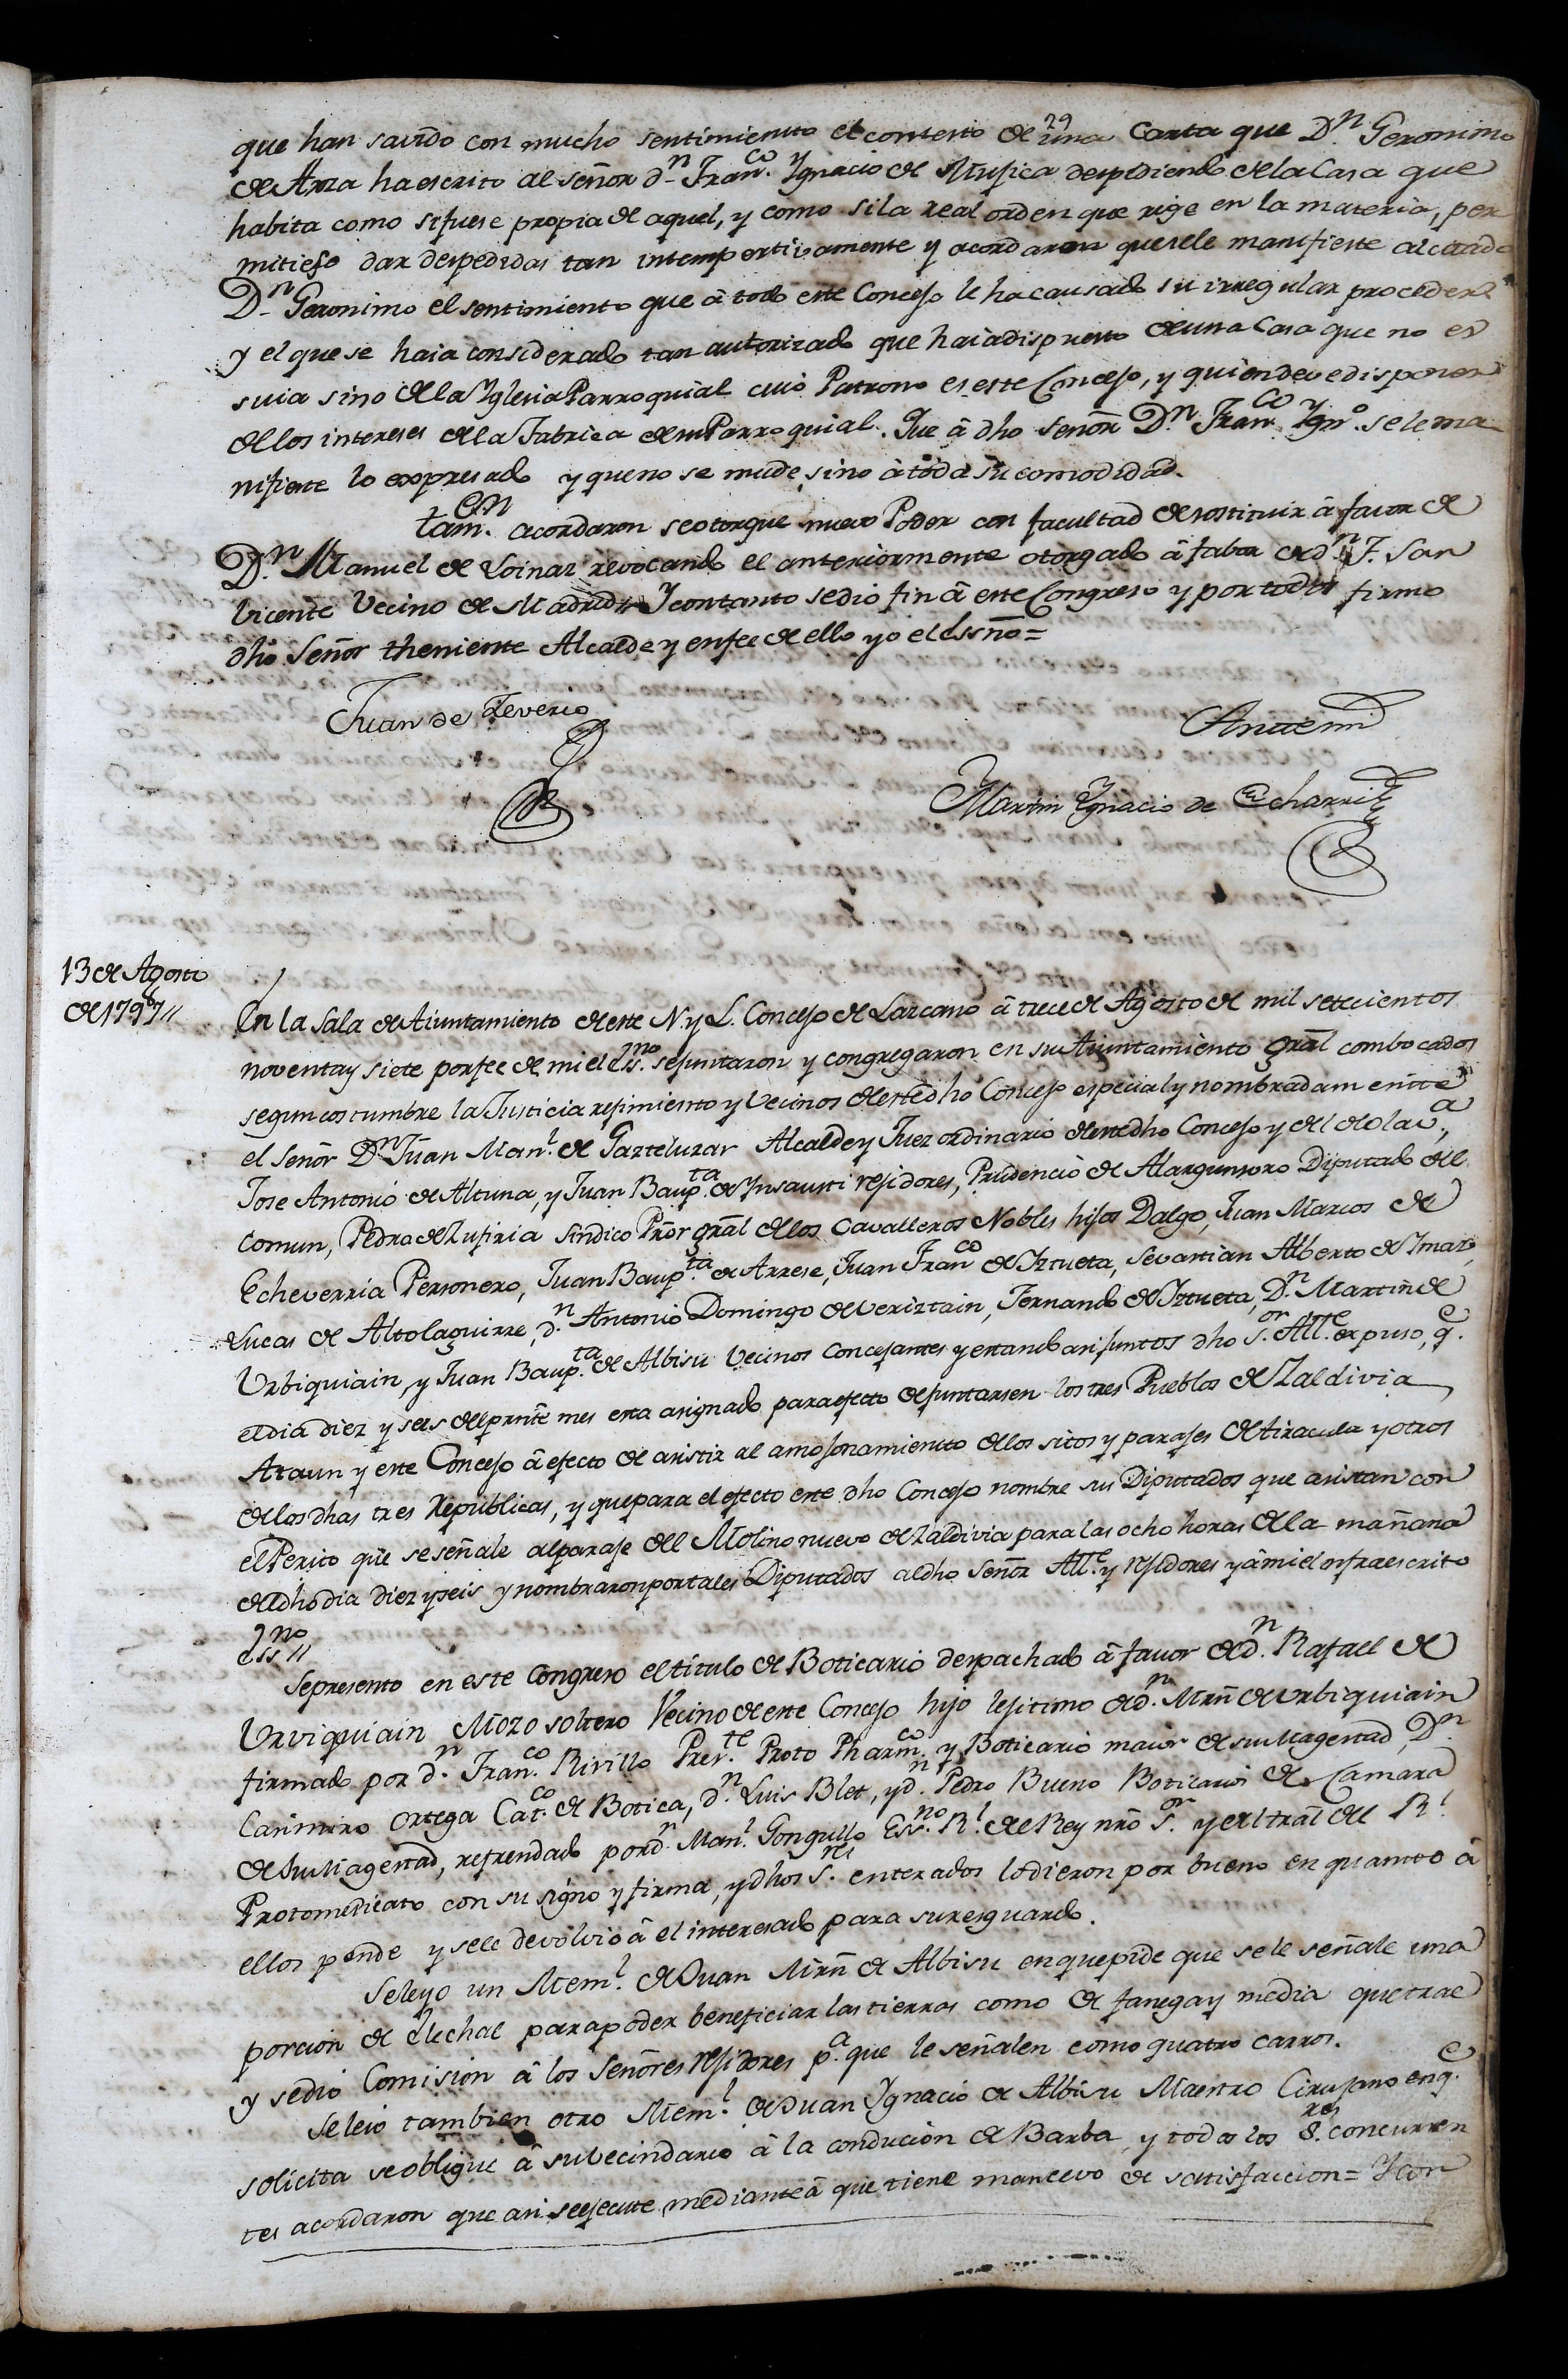 que han savido con mucho sentimiento el contesto de una Carta que Dn. Geronimo
de Arza ha escrito al señor dn. Franco. Ygnacio de Musica despidiendo de la Casa que
habita como si fuese propia de aquel, y como si la real orden que rige en la materia, per
mitiese dar despedidas tan intempestivamente y acordaron que se le manifieste al citado
Dn. Geronimo el sentimiento que â todo este Concejo le ha causado su irregular proceder
y el que se haia considerado tan autorizado que haia dispuesto de una Casa que no es
suia sino de la Yglesia Parroquial cuio Patrono es este Concejo, y quien deve disponer
de los intereses de la Fabrica de su Parroquial. Que â dho Señor Dn. Franco. Ygno. se le ma
nifieste lo expresado y que no se mude, sino â toda su comodidad.
tamen. acordaron se otorgue nuevo Poder con facultad de sostituir â favor de
Dn. Manuel de Loinaz revocando el anteriormente otorgado â fabor de dn. F. San
Vicente Vecino de Madrid // Y con tanto se dio fin â este Congreso y por todos firmo
dho Señor theniente Alcalde y en fee de ello yo el Essño =
Juan de Zeverio
Ante mi
Martin Ygnacio de Echarri
13 de Agosto
de 1797 //
En la Sala de Aiuntamiento de este N. y L. Concejo de Lazcano â trece de Agosto de mil setecientos
noventa y siete por fee de mi el Essno. se juntaron y congregaron en su Aiuntamiento gral combocados
segun costumbre la Justicia rejimiento y Vecinos de este dho Concejo especial y nombradamente
el Señor Dn Juan Manl. de Gazteluzar Alcalde y Juez ordinario de este dho Concejo y el de Olava.,
Jose Antonio de Altuna, y Juan Baupta. de Ynsausti rejidores, Prudencio de Alargunsoro Diputado del
Comun, Pedro de Zufiria Sindico Prõr grãl de los Cavalleros Nobles hijos Dalgo, Juan Marcos de
Echeverria Personero, Juan Baupta. de Arrese, Juan Franco de Yztueta, Sevastian Alberto de Ymaz,
Lucas de Altolaguirre, dn. Antonio Domingo de Veriztain, Fernando de Yztueta, Dn. Martin de
Urbiquiain, y Juan Baupta. de Albisu Vecinos Concejantes y estando asi juntos dho Sor. Alle. expuso, qe.
el dia diez y seis del prnte mes esta asignado para efecto de juntarsen los tres Pueblos de Zaldivia
Ataun y este Concejo â efecto de asistir al amojonamiento de los sitos y parajes de Atiracula y otros
de los dhas tres Republicas, y que para el efecto este dho Concejo nombre sus Diputados que asistan con
el Perito que se señale al paraje del Molino nuevo de Zaldivia para las ocho horas de la mañana
del dho dia diez y seis y nombraron por tales Diputados al dho Señor Alle. y rejidores y â mi el infraescrito
essno //
Se presento en este Congreso el titulo de Boticario despachado â favor de dn. Rafael de
Urviquiain Mozo soltero Vecino de este Concejo hijo lejitimo de dn. Mrñ de Urbiquiain
firmado por dn. Franco. Rivillo Prete. Proto Pharmco. y Boticario maior de su Magestad, Dn.
Casimiro Ortega Catco. de Botica, dn. Luis Blet, y dn. Pedro Bueno Boticarios de Camara
de su Magestad, refrendado por dn. Manl. Gongullo Essno. Rl. del Rey nrõ Sr. y el del trãl del Rl.
Protomedicato con su signo y firma, y dhos Sres. enterados lo dieron por bueno en quanto â
ellos pende y se le devolvio â el interesado para su resguardo.
Se leyo un Meml. de Juan Mrñ de Albisu en que pide que se le señale una
porcion de Elechal para poder beneficiar las tierras como de fanega y media que trae
y se dio Comision â los Señores rejidores pa. que le señalen como quatro carros.
Se leio tambien otro Meml. de Juan Ygnacio de Albisu Maestro Cirujano en qe.
solicita se oblique â su becindario â la conducion de Barba, y todos los Sres. concurren
tes acordaron que asi se ejecute mediante â que tiene mancevo de satisfaccion = Y con